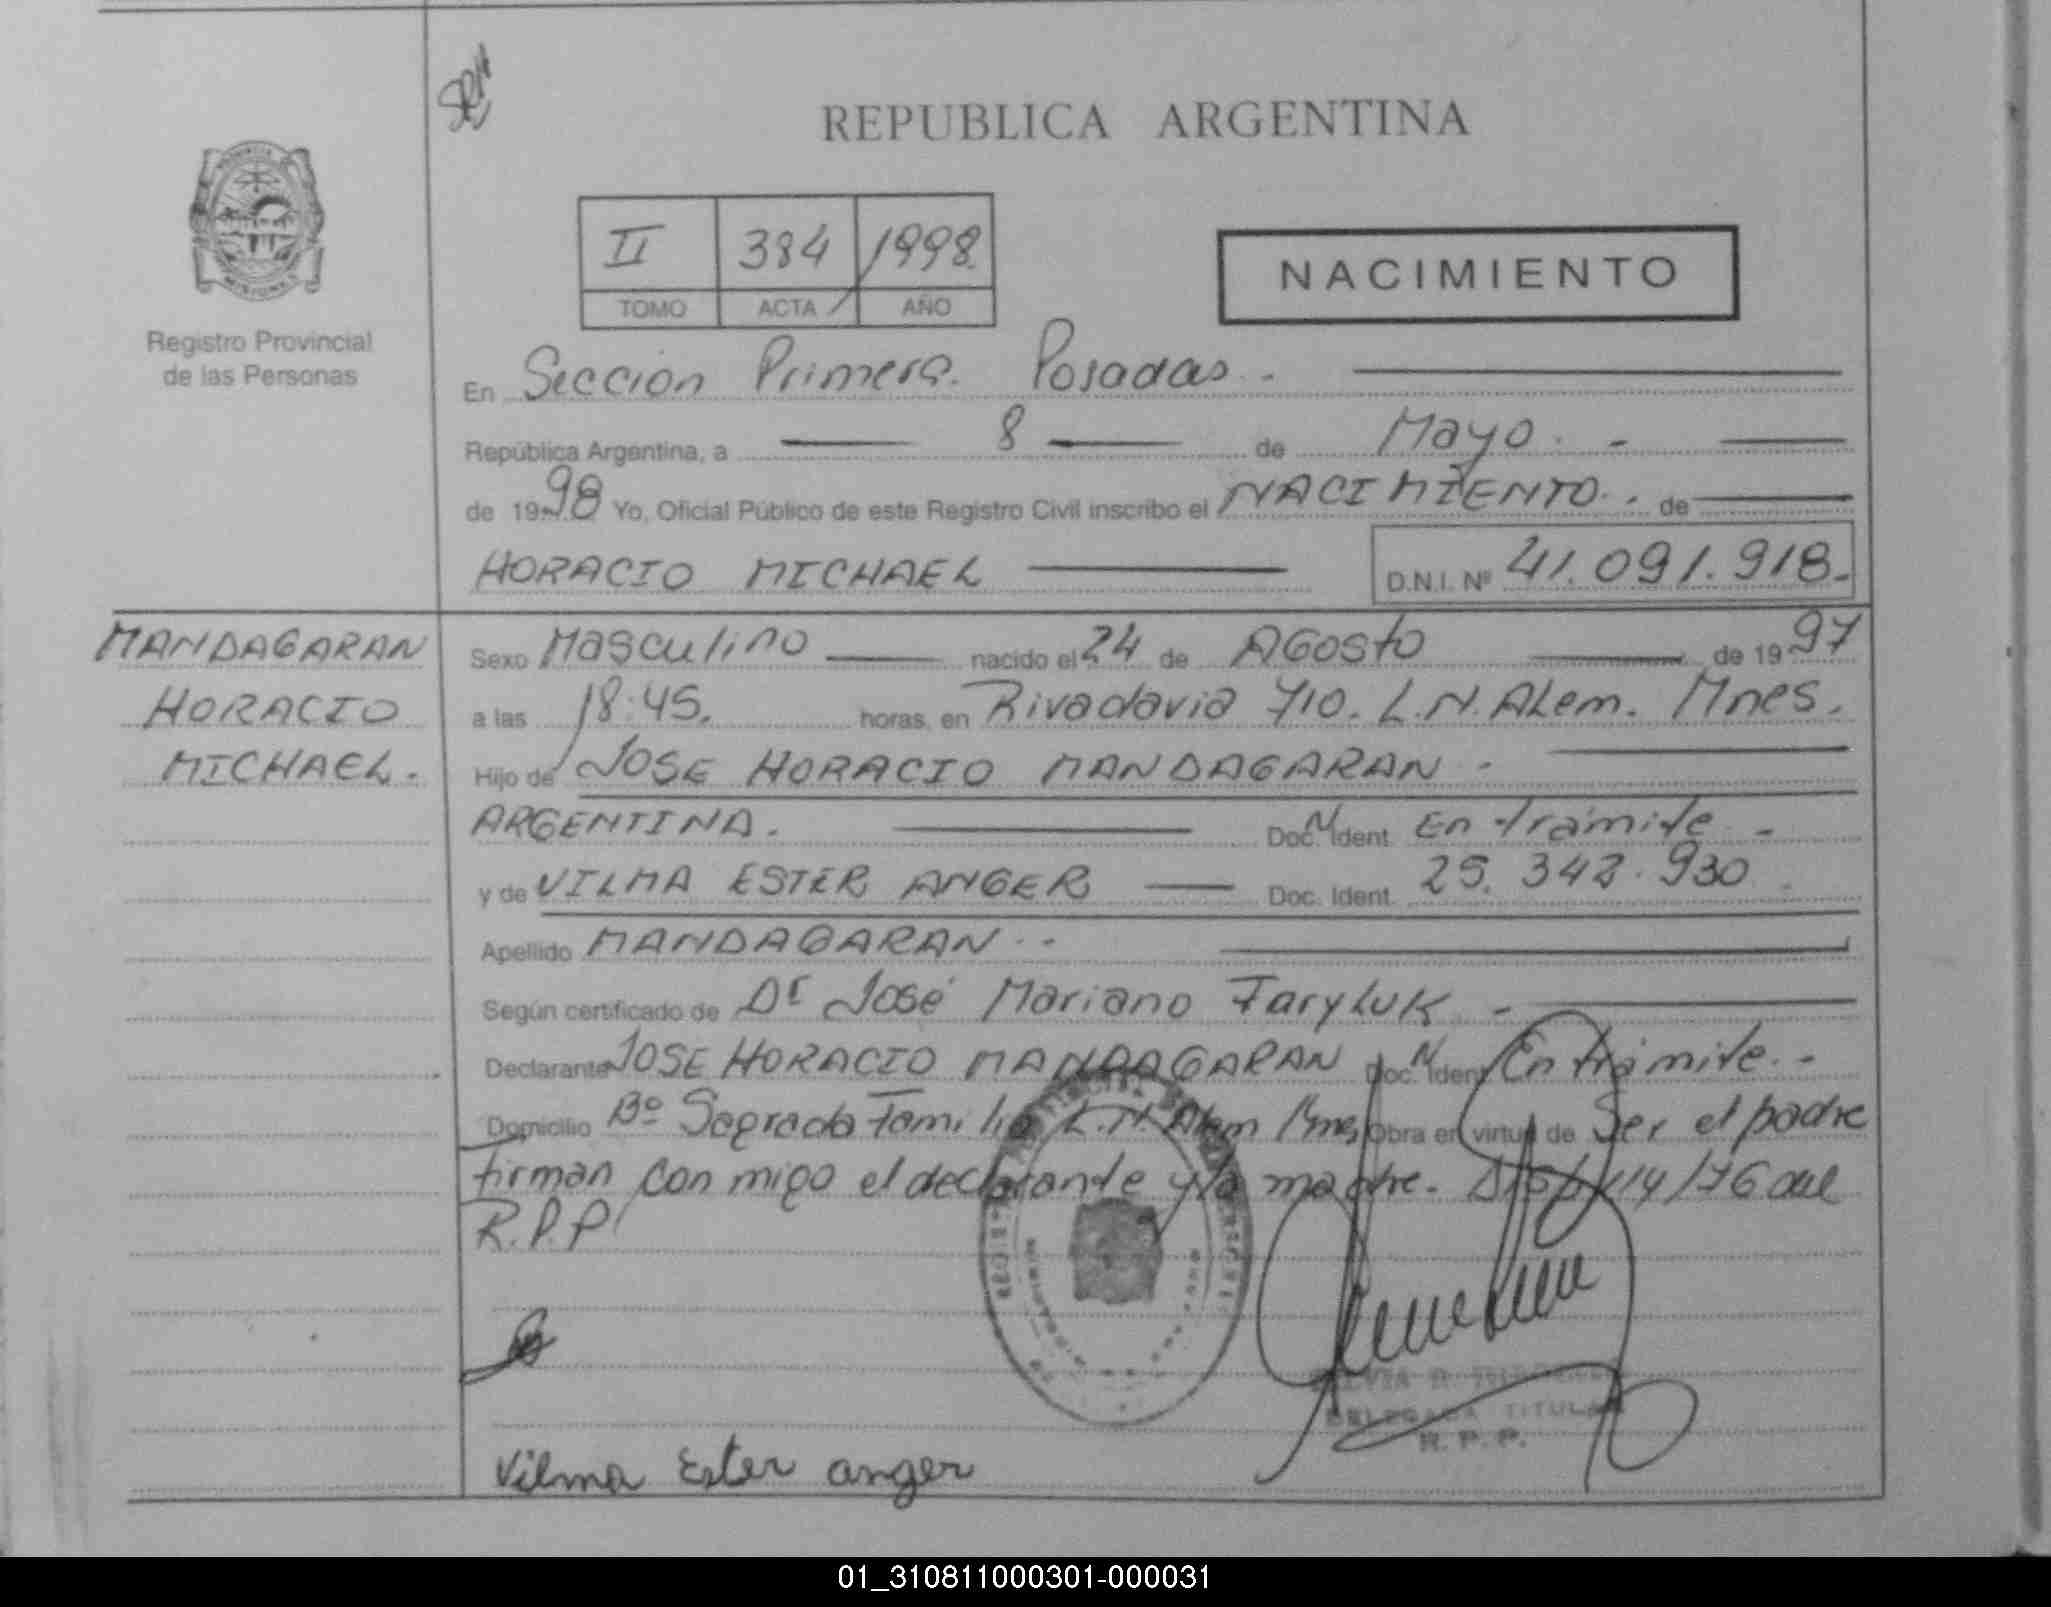 REPUBLICA ARGENTINA
II 384 1998
TOMO ACTA AÑO
NACIMIENTO
PROVINCIA
MISIONES
Registro Provincial
de las Personas
En Sección Primera. Posadas.-
República Argentina, a 8 de Mayo.-
de 1998 Yo, Oficial Público de este Registro Civil inscribo el NACIMIENTO. de
HORACIO MICHAEL D.N.I. Nº 41.091.918.-
MANDAGARAN
HORACIO
MICHAEL.
Sexo Masculino nacido el 24 de AGosto de 1997
a las 18:45. horas, en Rivadavia 710. L.N.ALem. Mnes.
Hijo de JOSE HORACIO MANDAGARAN -
ARGENTINA. Doc. Ident. En trámite -
y de VILMA ESTER ANGER Doc. Ident. 25.342.930
Apellido MANDAGARAN.-
Según certificado de Dr José Mariano FaryLuK -
Declarante JOSE HORACIO MANDAGARAN Doc. Ident. En trámite.-
Domicilio Bº Sagrada Familia L.N Alem Mnes, Obra en virtud de Ser el padre
firman con migo el declarante y la madre. 14/76 del
R.P.P
DELEGADA TITULAR
R. P. P.
Vilma Ester anger
01_310811000301-000031